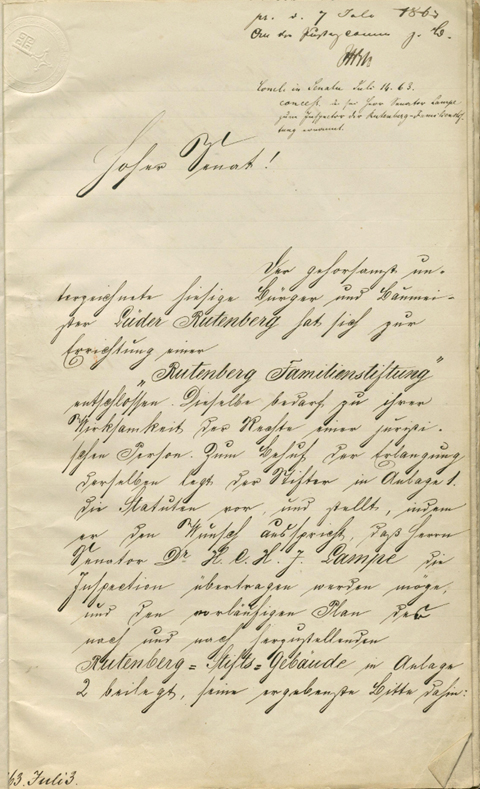 pr. d. 7 Juli 1863
An die
Concl. in Senatu Juli 14. 63.
concess. u. sei Herr Senator Lampe
zum Inspector der Rutenberg-Familienstif-
tung ernannt.
Hoher Senat!
Der gehorsamst un-
terzeichnete hiesige Bürger und Baumei-
ster Lüder Rutenberg hat sich zur
Errichtung einer
„Rutenberg Familienstiftung"
entschlossen. Dieselbe bedarf zu ihrer
Wirksamkeit der Rechte einer juristi-
schen Person. Zum Behuf der Erlangung
derselben legt der Stifter in Anlage 1.
die Statuten vor, und stellt, indem
er den Wunsch ausspricht, daß Herrn
Senator Dr. H. C. H. J. Lampe die
Inspection übertragen werden möge,
und den vorläufigen Plan des
nach und nach herzustellenden
Rutenberg=Stifts=Gebäude in Anlage
2 beilegt, seine ergebenste Bitte dahin:
63. Juli 3.